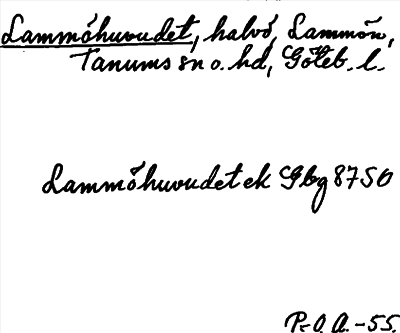 Lammöhuvudet, halvö, Lammön,
Tanums sn o. hd, Göteb. l.
Lammöhuvudet ek Gbg 8750
P-O. A. -55.